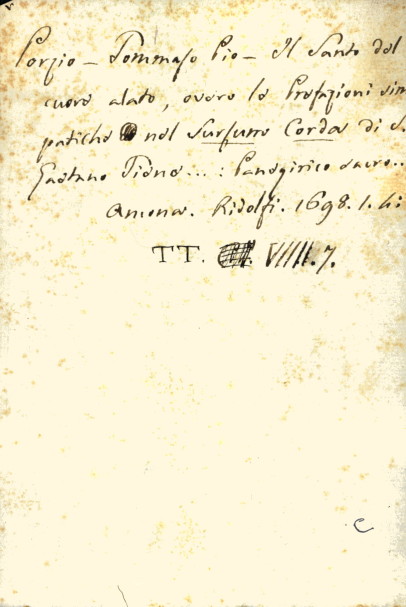 Porzio – Tommaso Pio – Il Santo del
cuore alato, overo le Prefazioni sim
patiche nel Sursum Corda di S.
Gaetano Tiene... : Panegirico sacro..
Ancona. Ridolfi. 1698. 1.
TT. VIIII.7.
C